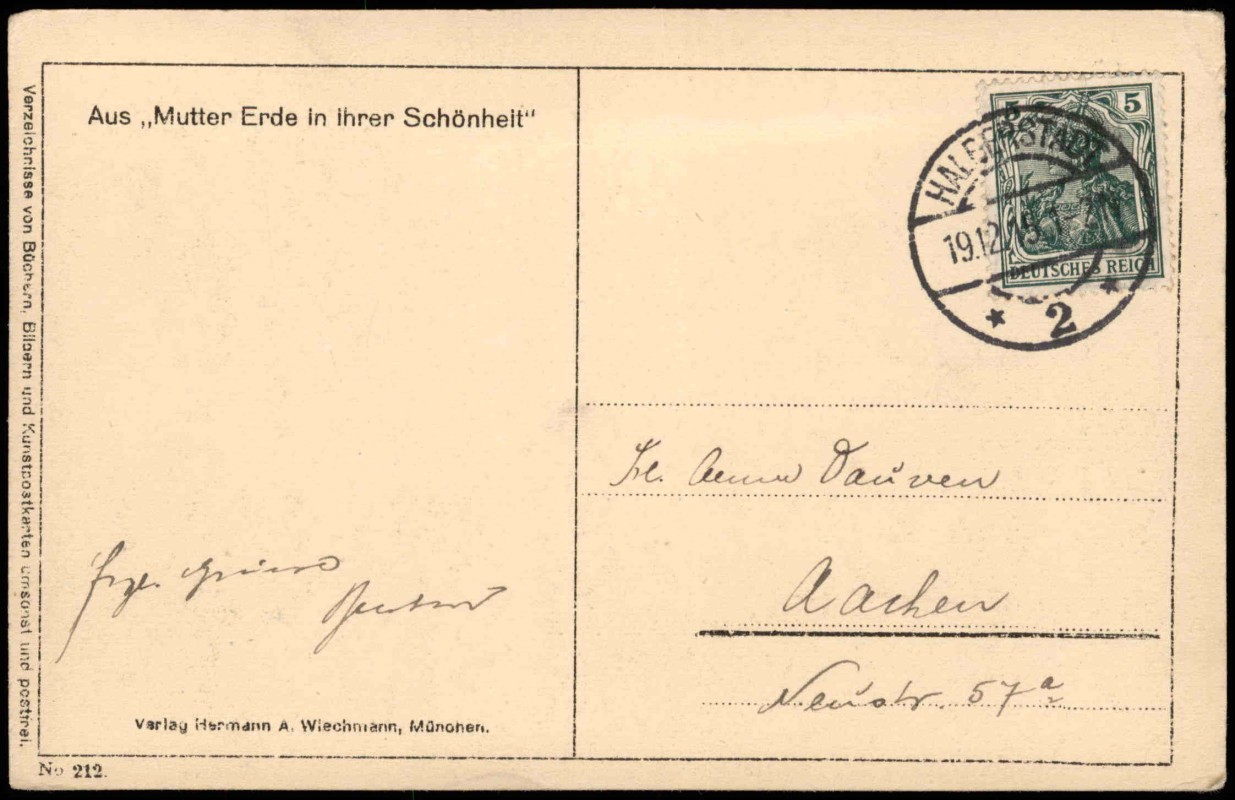 Aus „Mutter Erde in ihrer Schönheit“
Verzeichnisse von Büchern, Bildern und Kunstpostkarten umsonst und postfrei.
5 5
DEUTSCHES REICH
HALBERSTADT
19.12.15.1-2N
* 2 *
Frl. Änne Dauven
Aachen
Neustr. 57a
Herzl. Grüsse
Verlag Hermann A. Wiechmann, München.
No 212.